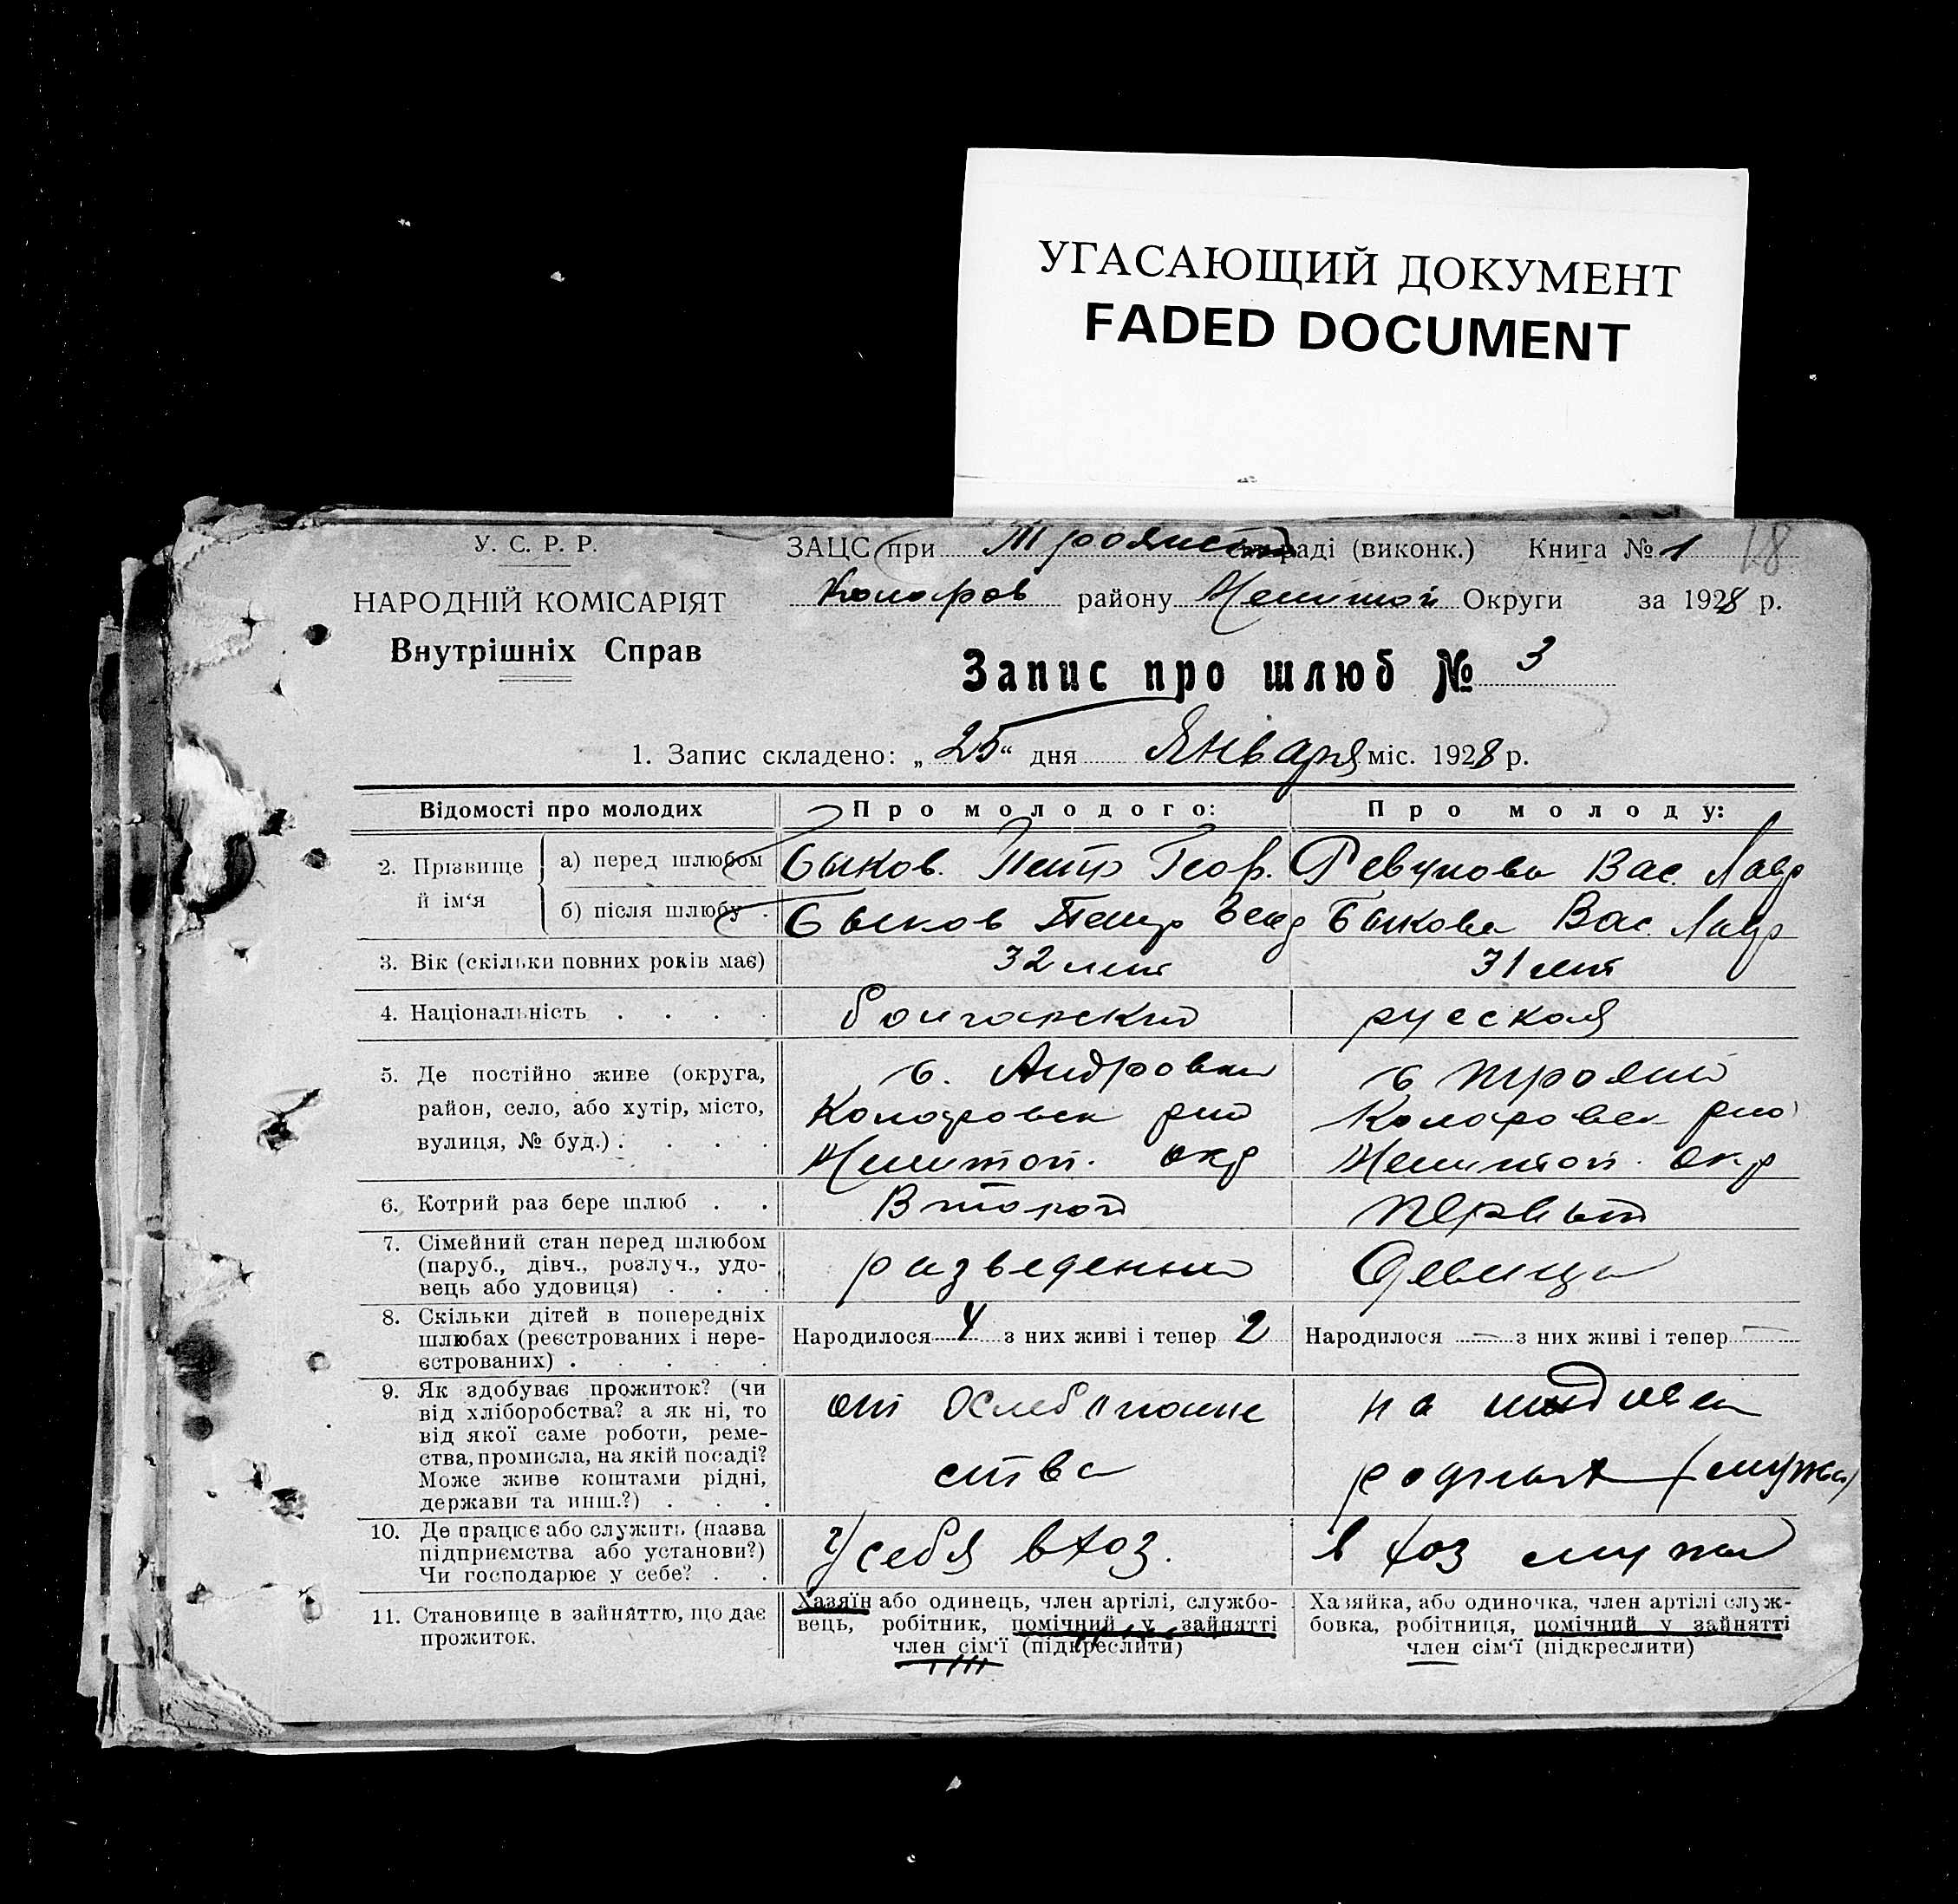 УГАСАЮЩИЙ ДОКУМЕНТ
FADED DOCUMENT
У. С. Р. Р.
ЗАЦС при Троянс раді (виконк.) Книга № 1 18
НАРОДНІЙ КОМІСАРІЯТ
Коларов району Мелитоп Округи за 1928 р.
Внутрішніх Справ
Запис про шлюб № 3
1. Запис складено: „25“ дня Января міс. 1928 р.
Відомості про молодих Про молодого: Про молоду:
2. Прізвище й ім‘я
а) перед шлюбом Быков Петр Геор. Ревунова Вас. Лавр
б) після шлюбу . Быков Петр Геор Быкова Вас. Лавр
3. Вік (скільки повних років має) 32 лет 31 лет
4. Національність . . . . болгарский русская
5. Де постійно живе (округа, район, село, або хутір, місто, вулиця, № буд.) . . . .
с. Андровки
Коларовск рно
Мелитоп. окр
с Трояны
Коларовск рно
Мелитоп. окр
6. Котрий раз бере шлюб . . Второй первый
7. Сімейний стан перед шлюбом
(паруб., дівч., розлуч., удо-
вець або удовиця) . . .
разведенный девица
8. Скільки дітей в попередніх
шлюбах (реєстрованих і нере-
єстрованих) . . . . .
Народилося 4 з них живі і тепер 2 Народилося — з них живі і тепер —
9. Як здобуває прожиток? (чи
від хліборобства? а як ні, то
від якої саме роботи, реме-
ства, промисла, на якій посаді?
Може живе коштами рідні,
держави та инш.?) . . .
от
ства
на
родных (мужа)
10. Де працює або служить (назва
підприємства або установи?)
Чи господарює у себе? . .
У себя в хоз. в хоз мужа
11. Становище в зайняттю, що дає
прожиток.
Хазяїн або одинець, член артілі, службо-
вець, робітник, помічний у зайнятті
член сім‘ї (підкреслити)
Хазяйка, або одиночка, член артілі служ-
бовка, робітниця, помічний у зайнятті
член сім‘ї (підкреслити)